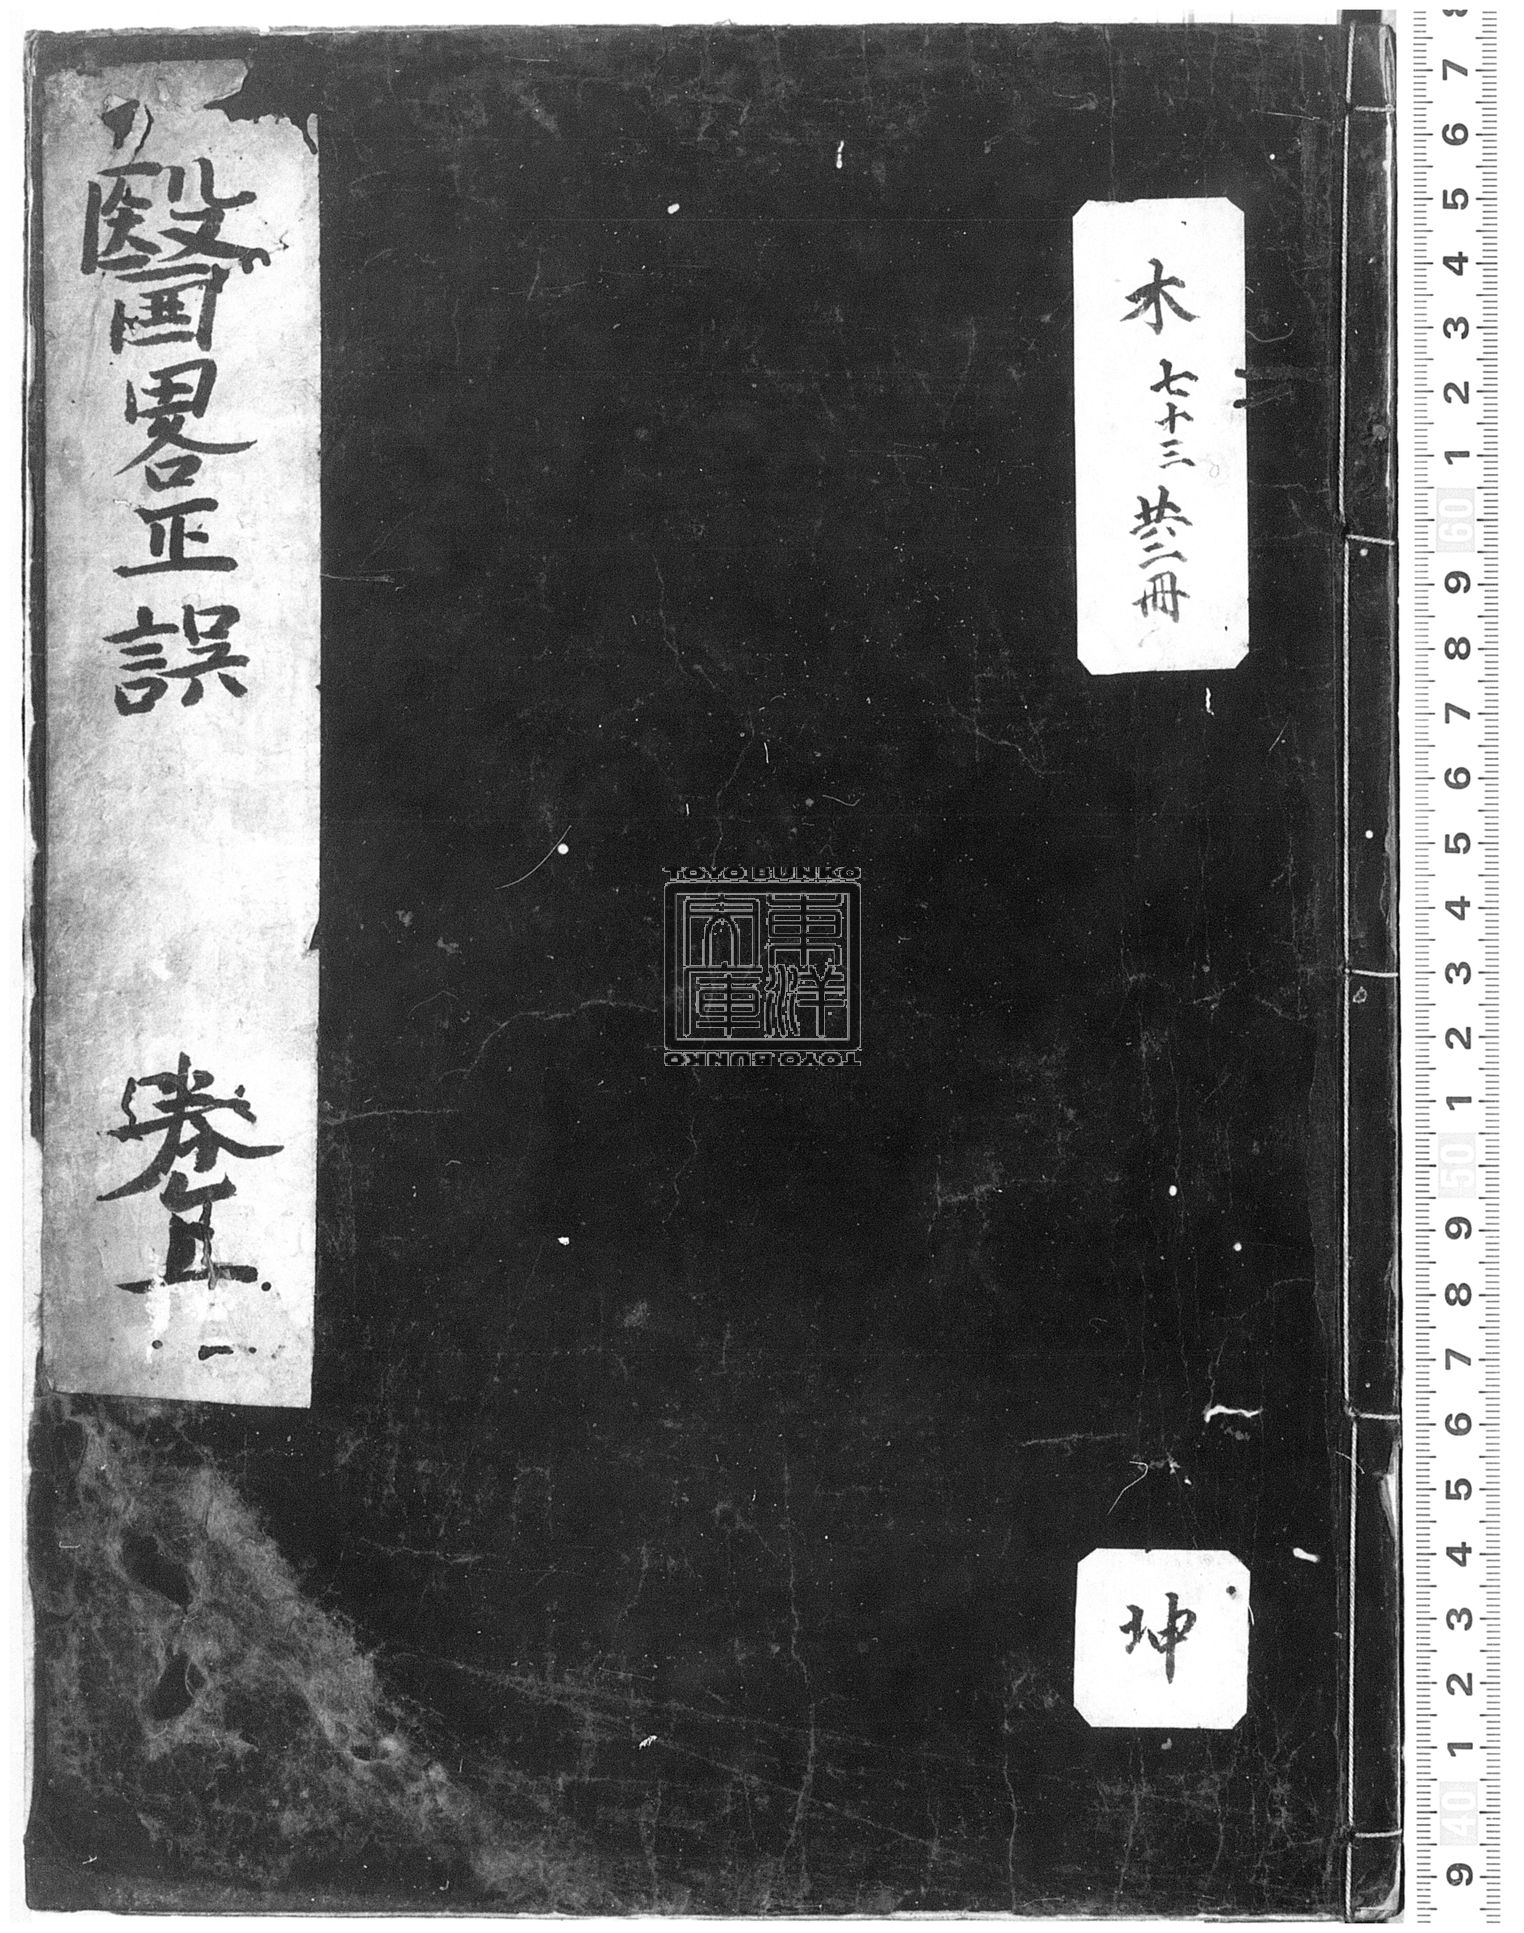 木 七十三 共二冊
坤
醫畧正誤 卷
TOYO BUNKO
東洋
文庫
TOYO BUNKO
7 6 5 4 3 2 1 60 9 8 7 6 5 4 3 2 1 50 9 8 7 6 5 4 3 2 1 40 9